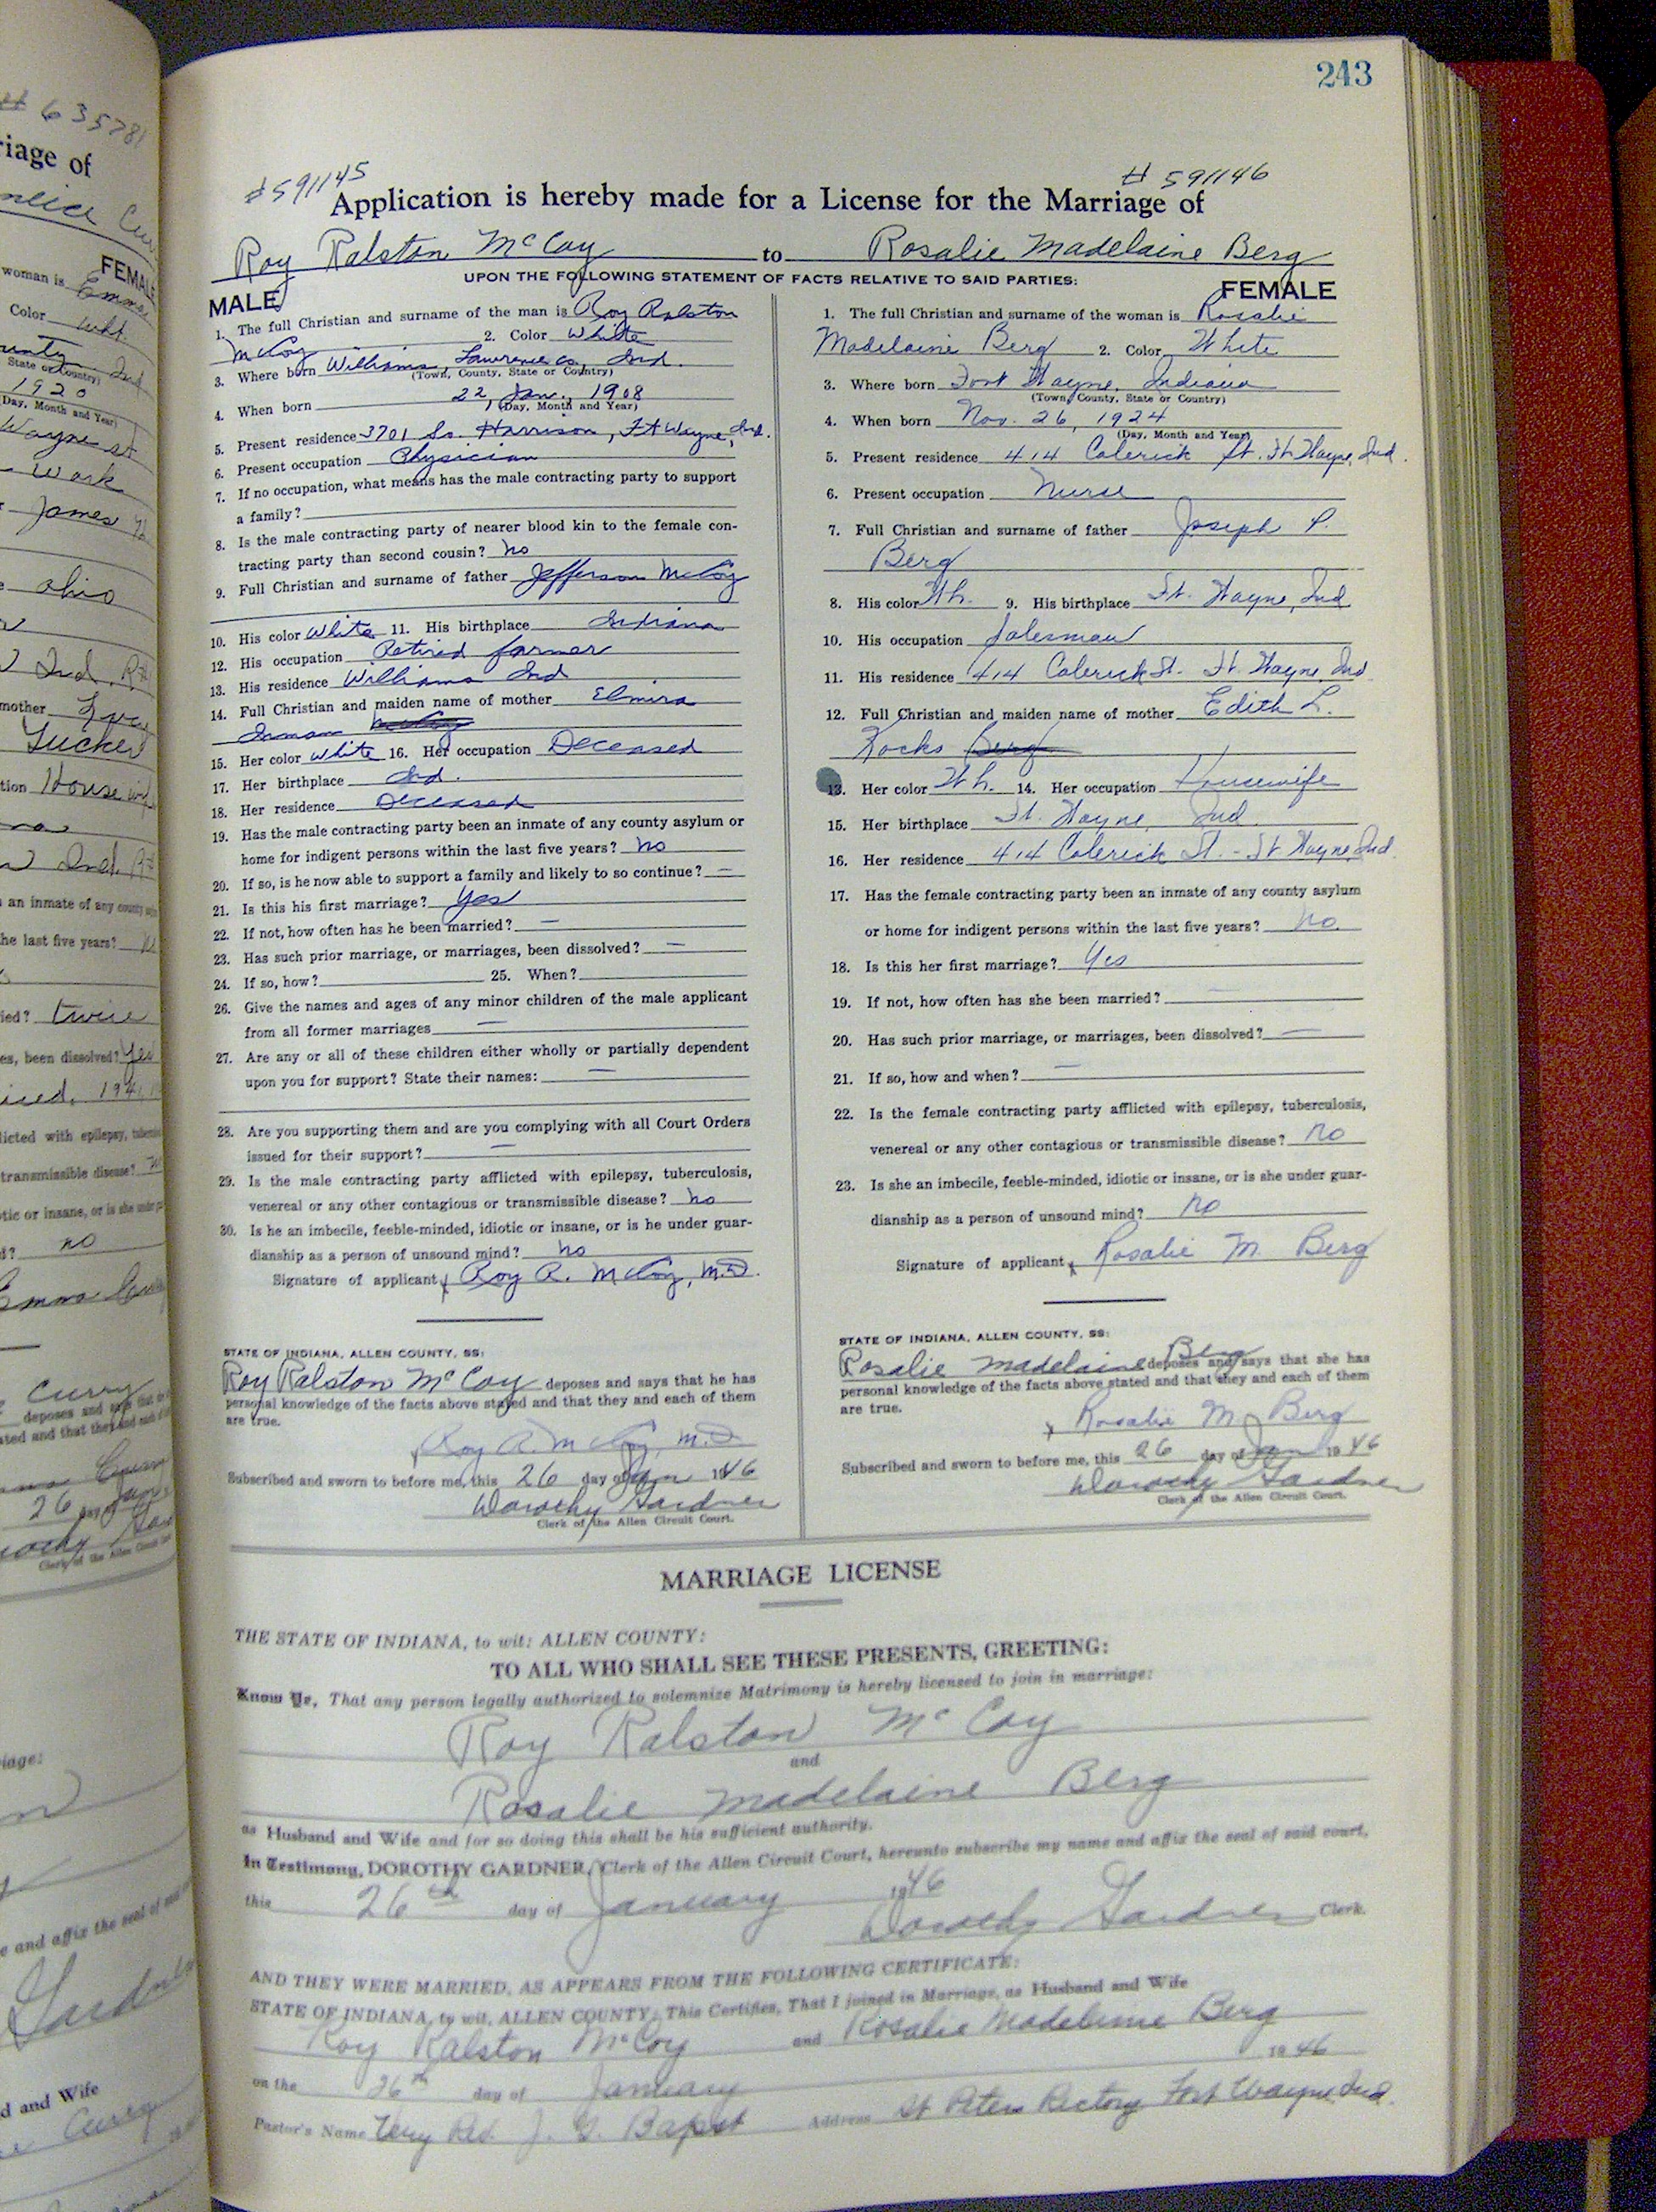 243
#591145 # 591146
Application is hereby made for a License for the Marriage of
Roy Ralston McCoy to Rosalie Madelaine Berg
UPON THE FOLLOWING STATEMENT OF FACTS RELATIVE TO SAID PARTIES:
MALE
1. The full Christian and surname of the man is Roy Ralston
McCoy 2. Color White
3. Where born Williams, Lawrence co. Ind.
(Town, County, State or Country)
4. When born 22, Jan., 1908
(Day, Month and Year)
5. Present residence 3701 So. Harrison, Ft Wayne, Ind.
6. Present occupation Physician
7. If no occupation, what means has the male contracting party to support
a family?
8. Is the male contracting party of nearer blood kin to the female con-
tracting party than second cousin? no
9. Full Christian and surname of father Jefferson McCoy
10. His color White 11. His birthplace Indiana
12. His occupation Retired farmer
13. His residence Williams Ind
14. Full Christian and maiden name of mother Elmira
Inman
15. Her color White 16. Her occupation Deceased
17. Her birthplace Ind.
18. Her residence Deceased
19. Has the male contracting party been an inmate of any county asylum or
home for indigent persons within the last five years? no
20. If so, is he now able to support a family and likely to so continue? —
21. Is this his first marriage? Yes
22. If not, how often has he been married? —
23. Has such prior marriage, or marriages, been dissolved? —
24. If so, how? 25. When?
26. Give the names and ages of any minor children of the male applicant
from all former marriages —
27. Are any or all of these children either wholly or partially dependent
upon you for support? State their names: —
28. Are you supporting them and are you complying with all Court Orders
issued for their support? —
29. Is the male contracting party afflicted with epilepsy, tuberculosis,
venereal or any other contagious or transmissible disease? no
30. Is he an imbecile, feeble-minded, idiotic or insane, or is he under guar-
dianship as a person of unsound mind? no
Signature of applicant x Roy R. McCoy, M.D.
STATE OF INDIANA, ALLEN COUNTY, SS:
Roy Ralston McCoy deposes and says that he has
personal knowledge of the facts above stated and that they and each of them
are true.
x Roy R. McCoy, M.D.
Subscribed and sworn to before me, this 26 day of Jan 1946
Dorothy Gardner
Clerk of the Allen Circuit Court.
FEMALE
1. The full Christian and surname of the woman is Rosalie
Madelaine Berg 2. Color White
3. Where born Fort Wayne, Indiana
(Town, County, State or Country)
4. When born Nov. 26, 1924
(Day, Month and Year)
5. Present residence 414 Colerick St. Ft. Wayne, Ind.
6. Present occupation Nurse
7. Full Christian and surname of father Joseph P.
Berg
8. His color Wh. 9. His birthplace Ft. Wayne, Ind
10. His occupation Salesman
11. His residence 414 Colerick St. Ft. Wayne, Ind
12. Full Christian and maiden name of mother Edith L.
Kocks Berg
13. Her color Wh. 14. Her occupation Housewife
15. Her birthplace Ft. Wayne, Ind
16. Her residence 414 Colerick St. - Ft Wayne, Ind
17. Has the female contracting party been an inmate of any county asylum
or home for indigent persons within the last five years? no.
18. Is this her first marriage? Yes
19. If not, how often has she been married? —
20. Has such prior marriage, or marriages, been dissolved? —
21. If so, how and when? —
22. Is the female contracting party afflicted with epilepsy, tuberculosis,
venereal or any other contagious or transmissible disease? no
23. Is she an imbecile, feeble-minded, idiotic or insane, or is she under guar-
dianship as a person of unsound mind? no
Signature of applicant x Rosalie M. Berg
STATE OF INDIANA, ALLEN COUNTY, SS:
Rosalie Madelaine Berg deposes and says that she has
personal knowledge of the facts above stated and that they and each of them
are true.
x Rosalie M. Berg
Subscribed and sworn to before me, this 26 day of Jan 1946
Dorothy Gardner
Clerk of the Allen Circuit Court.
MARRIAGE LICENSE
THE STATE OF INDIANA, to wit: ALLEN COUNTY:
TO ALL WHO SHALL SEE THESE PRESENTS, GREETING:
Know Ye, That any person legally authorized to solemnize Matrimony is hereby licensed to join in marriage:
Roy Ralston McCoy
and
Rosalie Madelaine Berg
as Husband and Wife and for so doing this shall be his sufficient authority.
In Testimony, DOROTHY GARDNER, Clerk of the Allen Circuit Court, hereunto subscribe my name and affix the seal of said court,
this 26th day of January 1946
Dorothy Gardner Clerk.
AND THEY WERE MARRIED, AS APPEARS FROM THE FOLLOWING CERTIFICATE:
STATE OF INDIANA, to wit, ALLEN COUNTY, This Certifies, That I joined in Marriage, as Husband and Wife
Roy Ralston McCoy and Rosalie Madeleine Berg
on the 26th day of January 1946
Pastor's Name Very Rev. J. G. Bapst Address St Peters Rectory Fort Wayne, Ind.